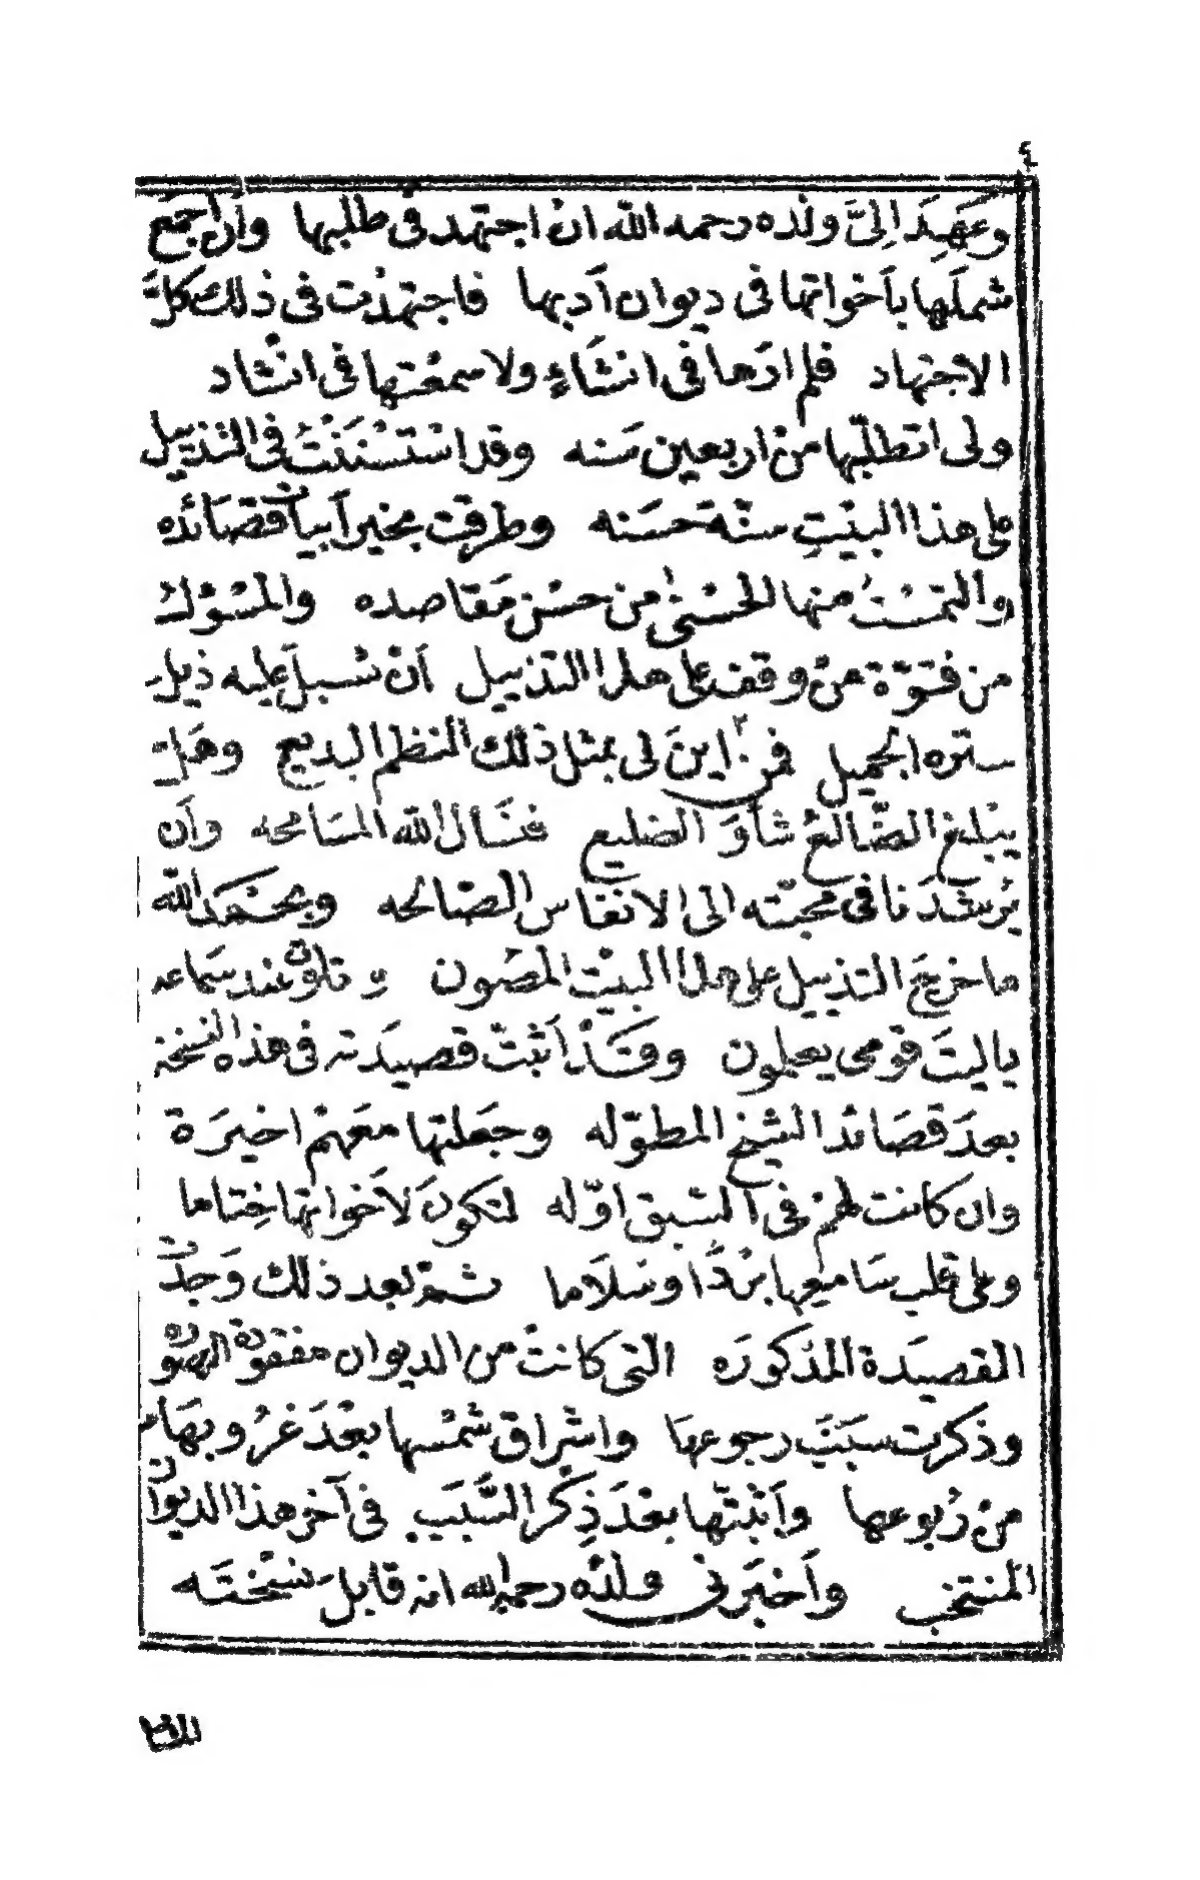 ٤
وَعَهِدَ اِلىَّ ولدُه رحمه الله انْ اجتهد فى طلبها وأن أجمع
شملَها بأخواتها فى ديوان أدبها فاجتهدْت فى ذلك كلَّ
الاجتهاد فلم ارَها فى انشَاءٍ ولا سمعْتها فى انْشاد
ولى اتطلّبها منْ اربعين سَنه وقد استَسْنَنْتُ فى التذييل
على هذا البيْتِ سنّةً حسَنه وطرقت بخير أبيات قصَائده
والتمسْتُ منها الحُسْنىٰ من حسْن مَقاصده والمسْؤلُ
من فتوّة منْ وقف على هذا التذييل أنْ يُسبل عليه ذيل
ستره الجميل فمن اينَ لى بمثل ذلك النظم البديع وهَل
يبْلغ الضّالعُ شأوَ الضليع فنسَال الله المسَامحه وأن
يُرشدَنا فى محبّته الى الانفاس الصّالحه وبحمد الله
ما خرجَ التذييل على هذا البيْت المصُون وتلوت عند سَماعه
ياليتَ قومى يعلمون وقَدْ أثبتّ قصيدَته فى هذه النسخة
بعدَ قصَائد الشيخ المطوّله وجعَلتها معَهمْ اخيرَة
وان كانت لهمْ فى السّبق اوّله لتكونَ لأخواتها خِتاما
وعلى قلب سَامِعِها برْدًا وسَلَاما ثمّ بعد ذلك وَجدْت
القصيدَة المذكورَه التى كانتْ من الديوان مفقودة الصّوره
وذكرت سبَبَ رجوعهَا واشْراق شمْسها بعْدَ غرُوبهَا
منْ رُبوعها وأثبتّها بعْدَ ذِكْر السَّبَب فى آخر هذا الديوان
المنتخب وأخبَرنى ولدُه رحمه الله انه قابلَ نسْختَه